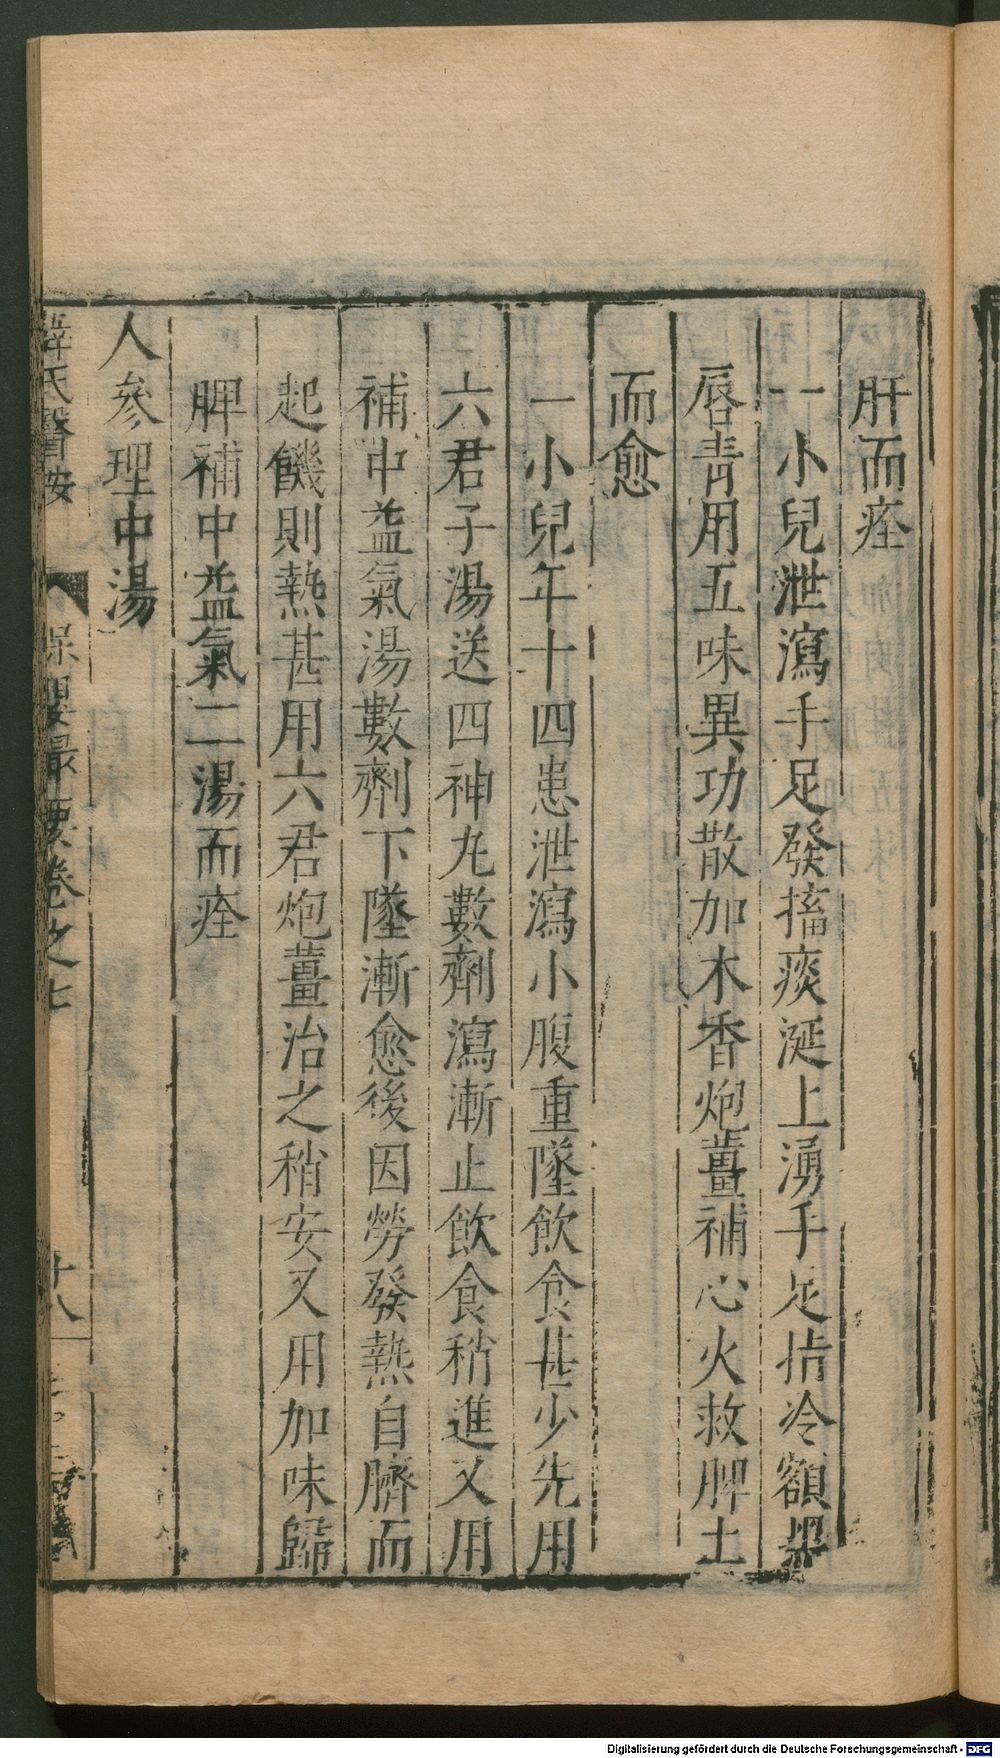 肝而痊
一小兒泄瀉手足發搐痰涎上湧手足指冷額黑
唇青用五味異功散加木香炮薑補心火救脾土
而愈
一小兒年十四患泄瀉小腹重墜飲食甚少先用
六君子湯送四神丸數劑瀉漸止飲食稍進又用
補中益氣湯數劑下墜漸愈後因勞發熱自臍而
起饑則熱甚用六君炮薑治之稍安又用加味歸
脾補中益氣二湯而痊
人參理中湯
薛氏醫按
保嬰撮要卷之七
十八
Digitalisierung gefördert durch die Deutsche Forschungsgemeinschaft - DFG